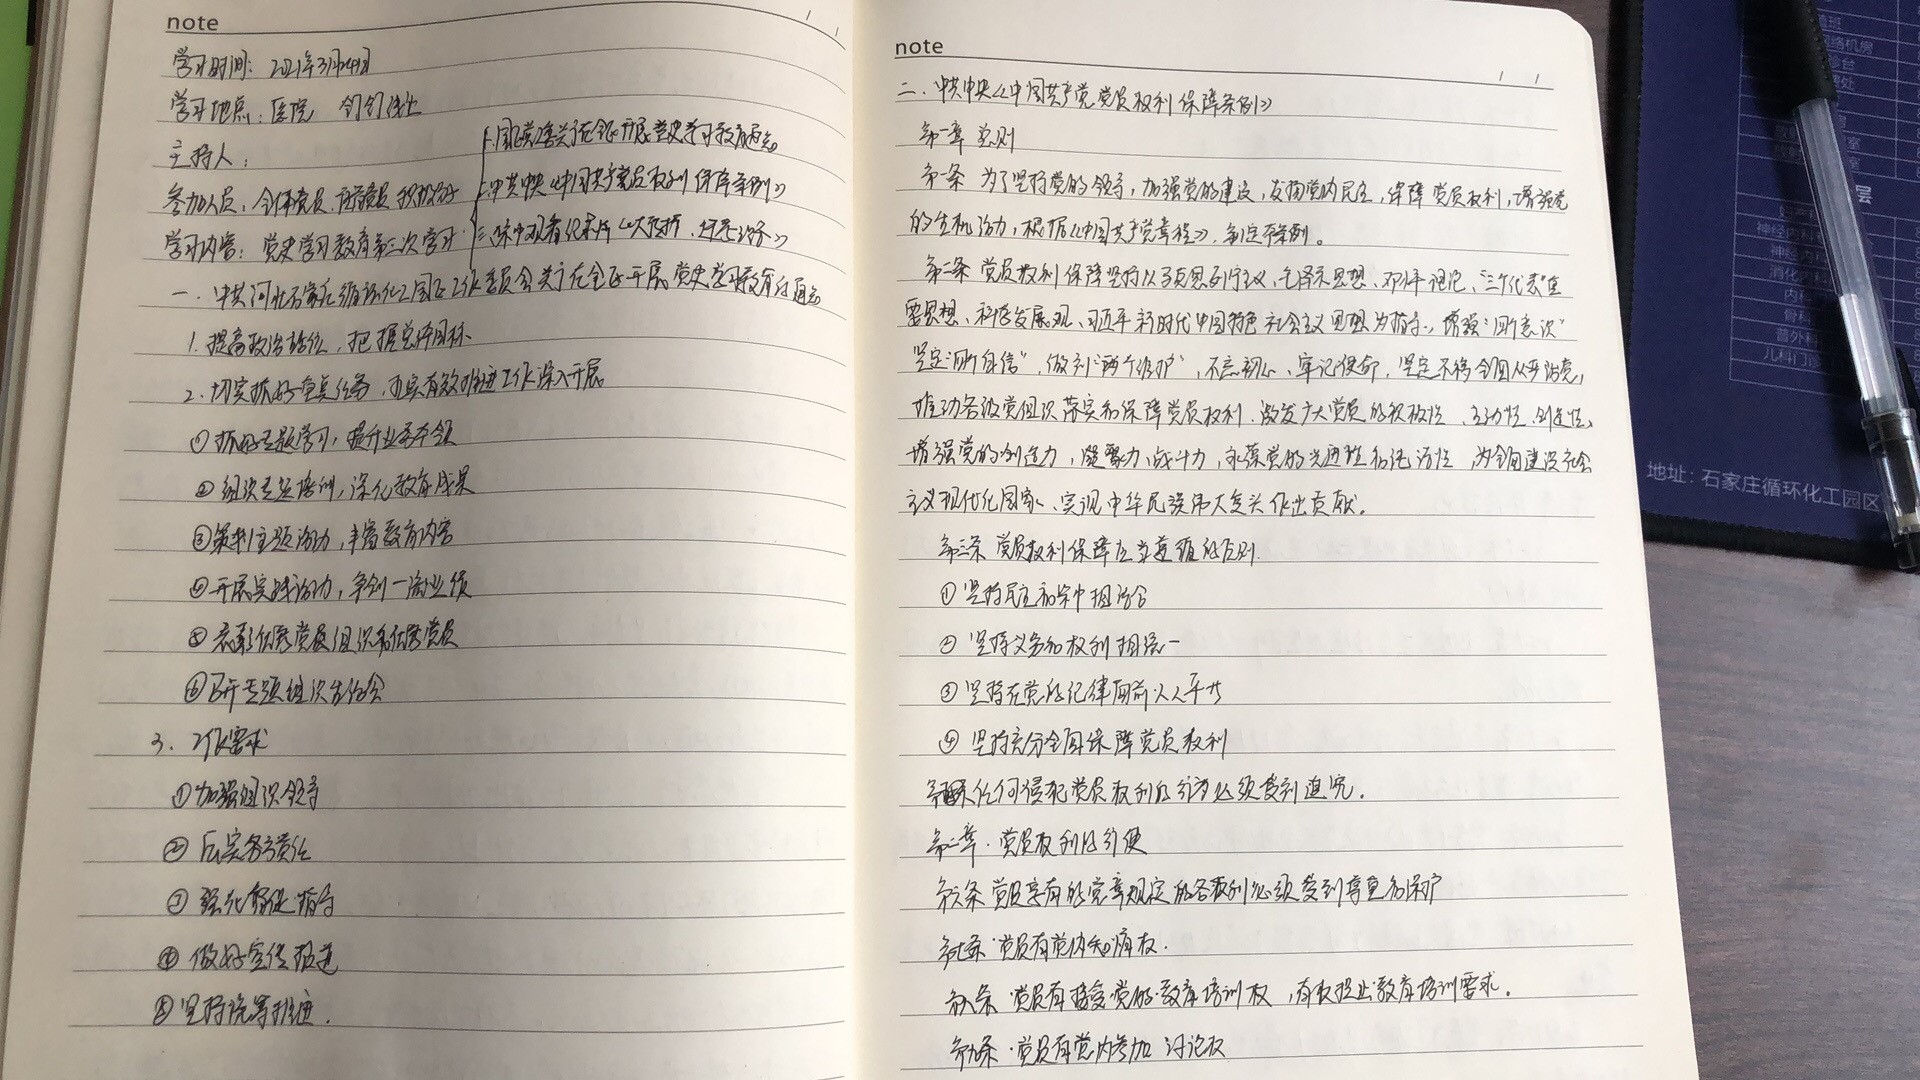 note
学习时间：2021年3月24日
学习地点：医院 钉钉线上
主持人：
参加人员：全体党员、预备党员、积极分子
学习内容：党史学习教育第三次学习
1.园区党工委关于在全区开展党史学习教育通知
2.中共中央《中国共产党党员权利保障条例》
3.集中观看纪录片
一．中共河北石家庄循环化工园区工作委员会关于在全区开展党史学习教育的通知
1.提高政治站位，把握总体目标
2.切实抓好重点任务，切实有效推进工作深入开展
①抓好专题学习，提升业务本领
②组织专题培训，深化教育成果
③策划主题活动，丰富教育内容
④开展实践活动，争创一流业绩
⑤表彰优秀党员组织和优秀党员
⑥召开专题组织生活会
3．工作要求
①加强组织领导
②压实各方责任
③强化督促指导
④做好宣传报道
⑤坚持统筹推进．
note
二．中共中央《中国共产党党员权利保障条例》
第一章 总则
第一条 为了坚持党的领导，加强党的建设，发扬党内民主，保障党员权利，增强党
的生机活力，根据《中国共产党章程》，制定本条例。
第二条 党员权利保障坚持以马克思列宁主义、毛泽东思想、邓小平理论、“三个代表”重
要思想、科学发展观、习近平新时代中国特色社会主义思想为指导，增强“四个意识”
坚定“四个自信”，做到“两个维护”，不忘初心、牢记使命，坚定不移全面从严治党，
推动各级党组织落实和保障党员权利，激发广大党员的积极性、主动性、创造性，
增强党的创造力，凝聚力，战斗力，永葆党的先进性和纯洁性，为全面建设社会
主义现代化国家、实现中华民族伟大复兴作出贡献．
第三条 党员权利保障应当遵循的原则．
①坚持民主和集中相结合
②坚持义务和权利相统一
③坚持在党的纪律面前人人平等
④坚持充分全面保障党员权利
第四条任何侵犯党员权利的行为必须受到追究．
第二章．党员权利的行使
第六条 党员享有的党章规定的各权利必须受到尊重和保护
第七条．党员有党内知情权．
第八条．党员有接受党的教育培训权，有权提出教育培训要求．
第九条．党员有党内参加讨论权
地址：石家庄循环化工园区
神经内科
内科
骨科
普外科
儿科门诊